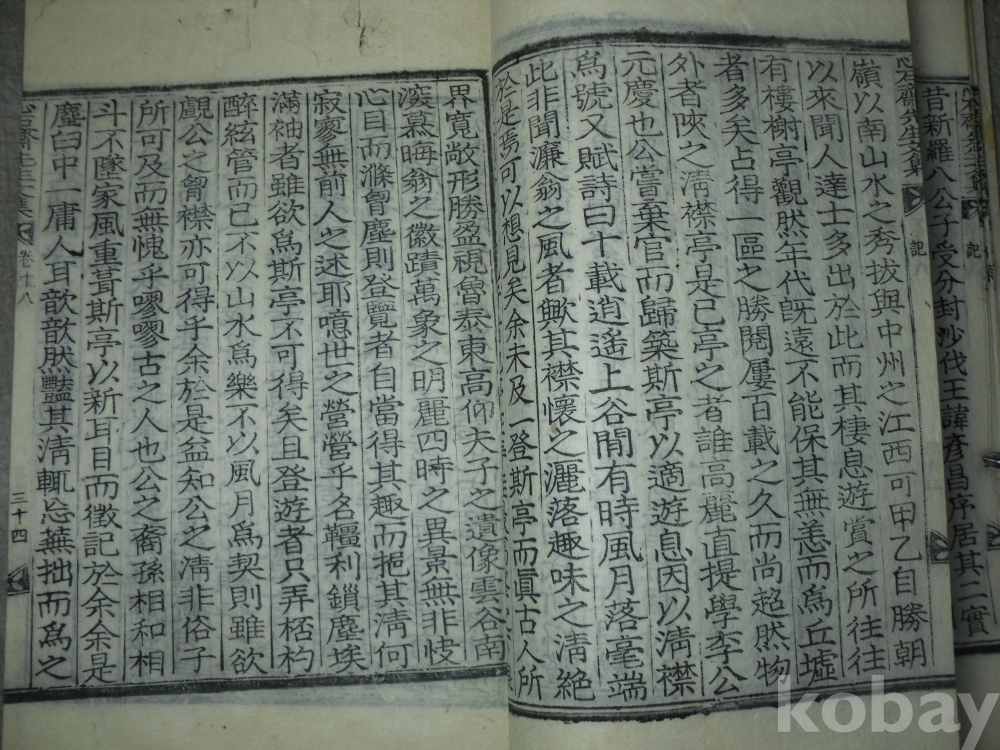 昔新羅八公子受分封沙伐王諱彦昌序居其二實
記
嶺以南山水之秀拔與中州之江西可甲乙自勝朝
以來聞人達士多出於此而其棲息遊賞之所往往
有樓榭亭觀然年代旣遠不能保其無恙而爲丘墟
者多矣占得一區之勝閱屢百載之久而尚超然物
外者陜之淸襟亭是已亭之者誰高麗直提學李公
元慶也公嘗棄官而歸築斯亭以適遊息因以淸襟
爲號又賦詩曰十載逍遙上谷間有時風月落毫端
此非聞濂翁之風者歟其襟懷之灑落趣味之淸絶
於是焉可以想見矣余未及一登斯亭而眞古人所
界寬敞形勝盈視魯泰東高仰夫子之遺像雲谷南
深慕晦翁之徽蹟萬象之明麗四時之異景無非
心目而滌曾塵則登覽者自當得其趣而挹其淸何
寂寥無前人之述耶噫世之營營乎名韁利鎖塵埃
滿袖者雖欲爲斯亭不可得矣且登遊者只弄桮杓
醉絃管而已不以山水爲樂不以風月爲契則雖欲
覰公之曾襟亦可得乎余於是益知公之淸非俗子
所可及而無愧乎嘐嘐古之人也公之裔孫相和相
斗不墜家風重葺斯亭以新耳目而徵記於余余是
塵臼中一庸人耳歆歆然豔其淸輒忘蕪拙而爲之
卷十八
三十四
kobay